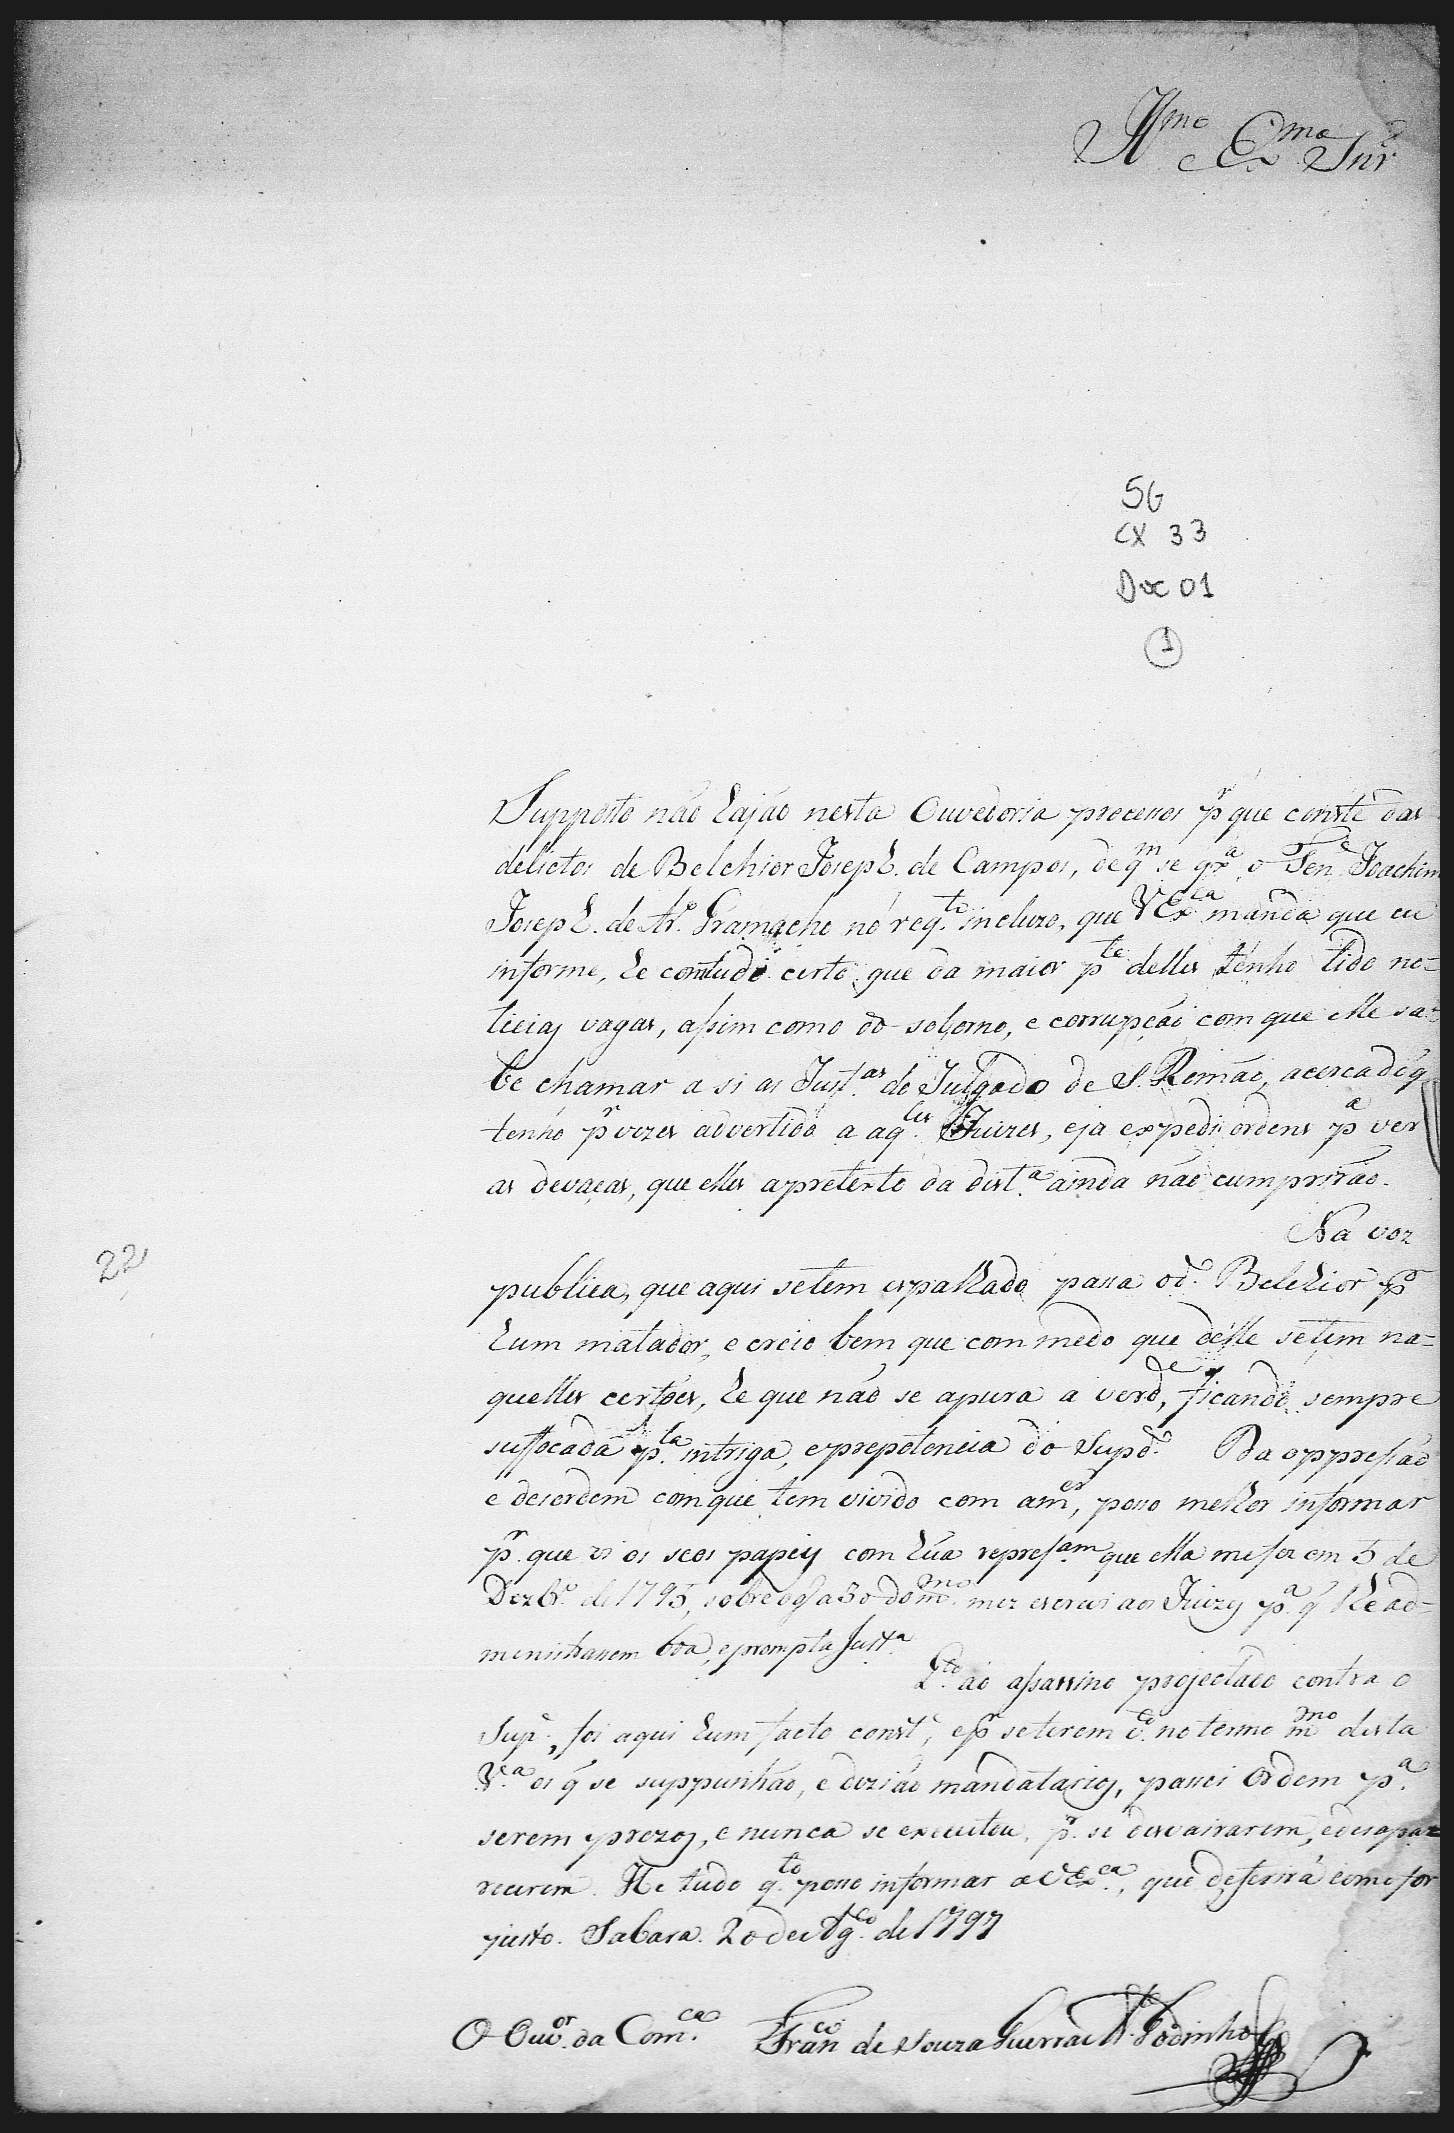 Illmo Exmo Snr
SG
CX 33
Doc 01
1
Supposto não hajão nesta Ouvedoria processos pr que conste dos
delictos de Belchior Joseph de Campos, de qm se qxa o Tene Joachim
Joseph de Ar.º Gramacho no reqto incluzo, que VExca manda que eu
informe, he comtudo certo que da maior pte delles tenho tido no=
ticias vagas, assim como do soborno, e corrupção com que elle sa=
be chamar a si as Justas do Julgado de S. Romão, acerca do q
tenho pr vezes advertido a aqles Juizes, e ja expedi ordens pa ver
as devaças, que elles a pretexto da dista ainda não cumprirão.
Na voz
publica, que aqui se tem espalhado passa o d.º Belchior pr
hum matador, e creio bem que com medo que delle se tem na=
quelles certões, he que não se apura a verde, ficando sempre
suffocada pla intriga, e prepotencia do Supdo. Da oppressão
e desordem com que tem vivido com a mer, posso melhor informar
pr que vi os seos papeis com hũa represam que ella me fez em 5 de
Dezbro de 1795, sobre o q a 30 do mmo mez escrevi aos Juizes pa q lhe ad=
ministrassem boa, e prompta Justa.
Qto ao assassino projectado contra o
Supe, foi aqui hum facto conste, e pr se terem no termo mmo desta
Va os q se suppunhão, e dizião mandatarios, passei Ordem pa
serem prezos, e nunca se executou, pr se desvairarem, e desapar
recerem. He tudo qto posso informar a VExca, que deferirá como for
justo. Sabara. 20 de Agto de 1797
22
O Ouvor da Comca Franco de Souza Guerra Ao Godinho